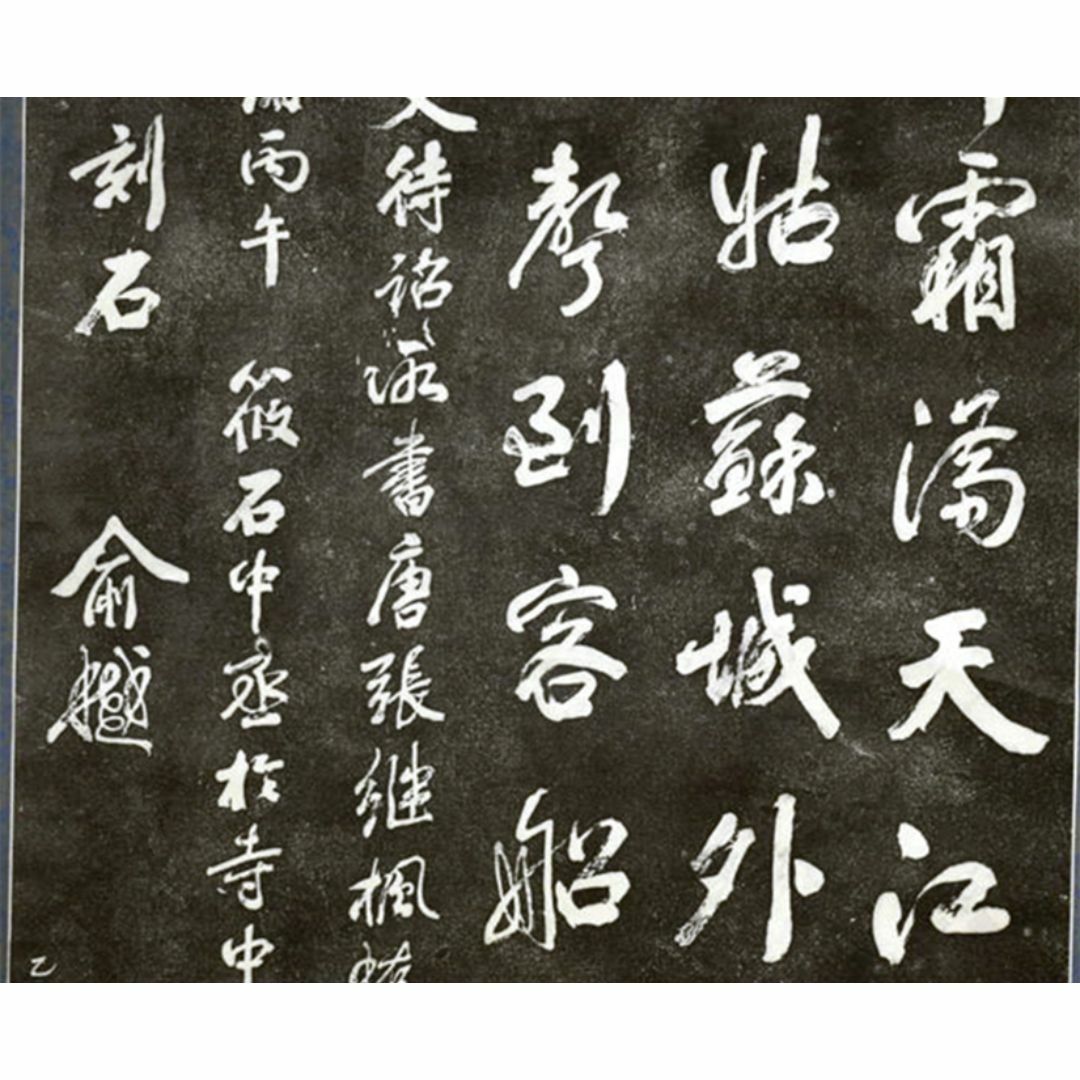 霜滿天江
姑蘇城外
聲到客船
待詔所書唐張繼楓
丙午筱石中丞於寺中
刻石俞樾